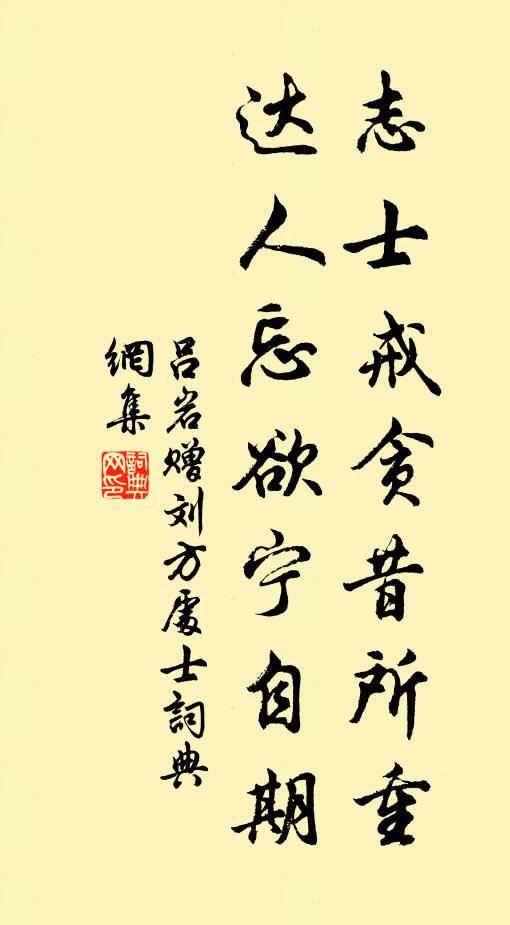 志士戒贪昔所重
达人忘欲宁自期
吕岩赠刘方处士詞典
網集
詞典网印